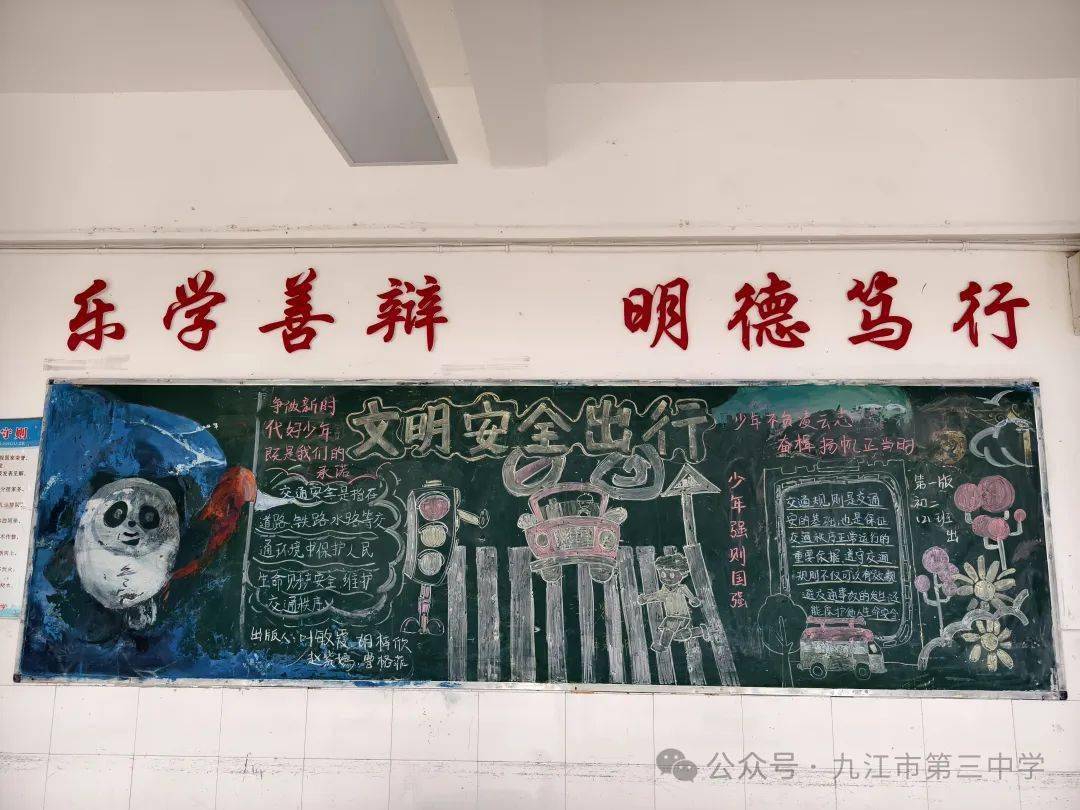 乐学善辩 明德笃行
守则
争做新时
代好少年
既是我们的
承诺
文明安全出行
少年不负凌云志
奋楫扬帆正当时
交通安全是指在
道路、铁路、水路等交
通环境中保护人民
生命财产安全、维护
交通秩序。
出版人:叶敏霞、胡梓欣
少年强则国强
交通规则是交通
安全的基础,也是保证
交通秩序正常运行的
重要依据,遵守交通
规则不仅可以有效避
免交通事故的发生,还
能保护他人生命安全
第一版
初二
班
出
公众号 · 九江市第三中学